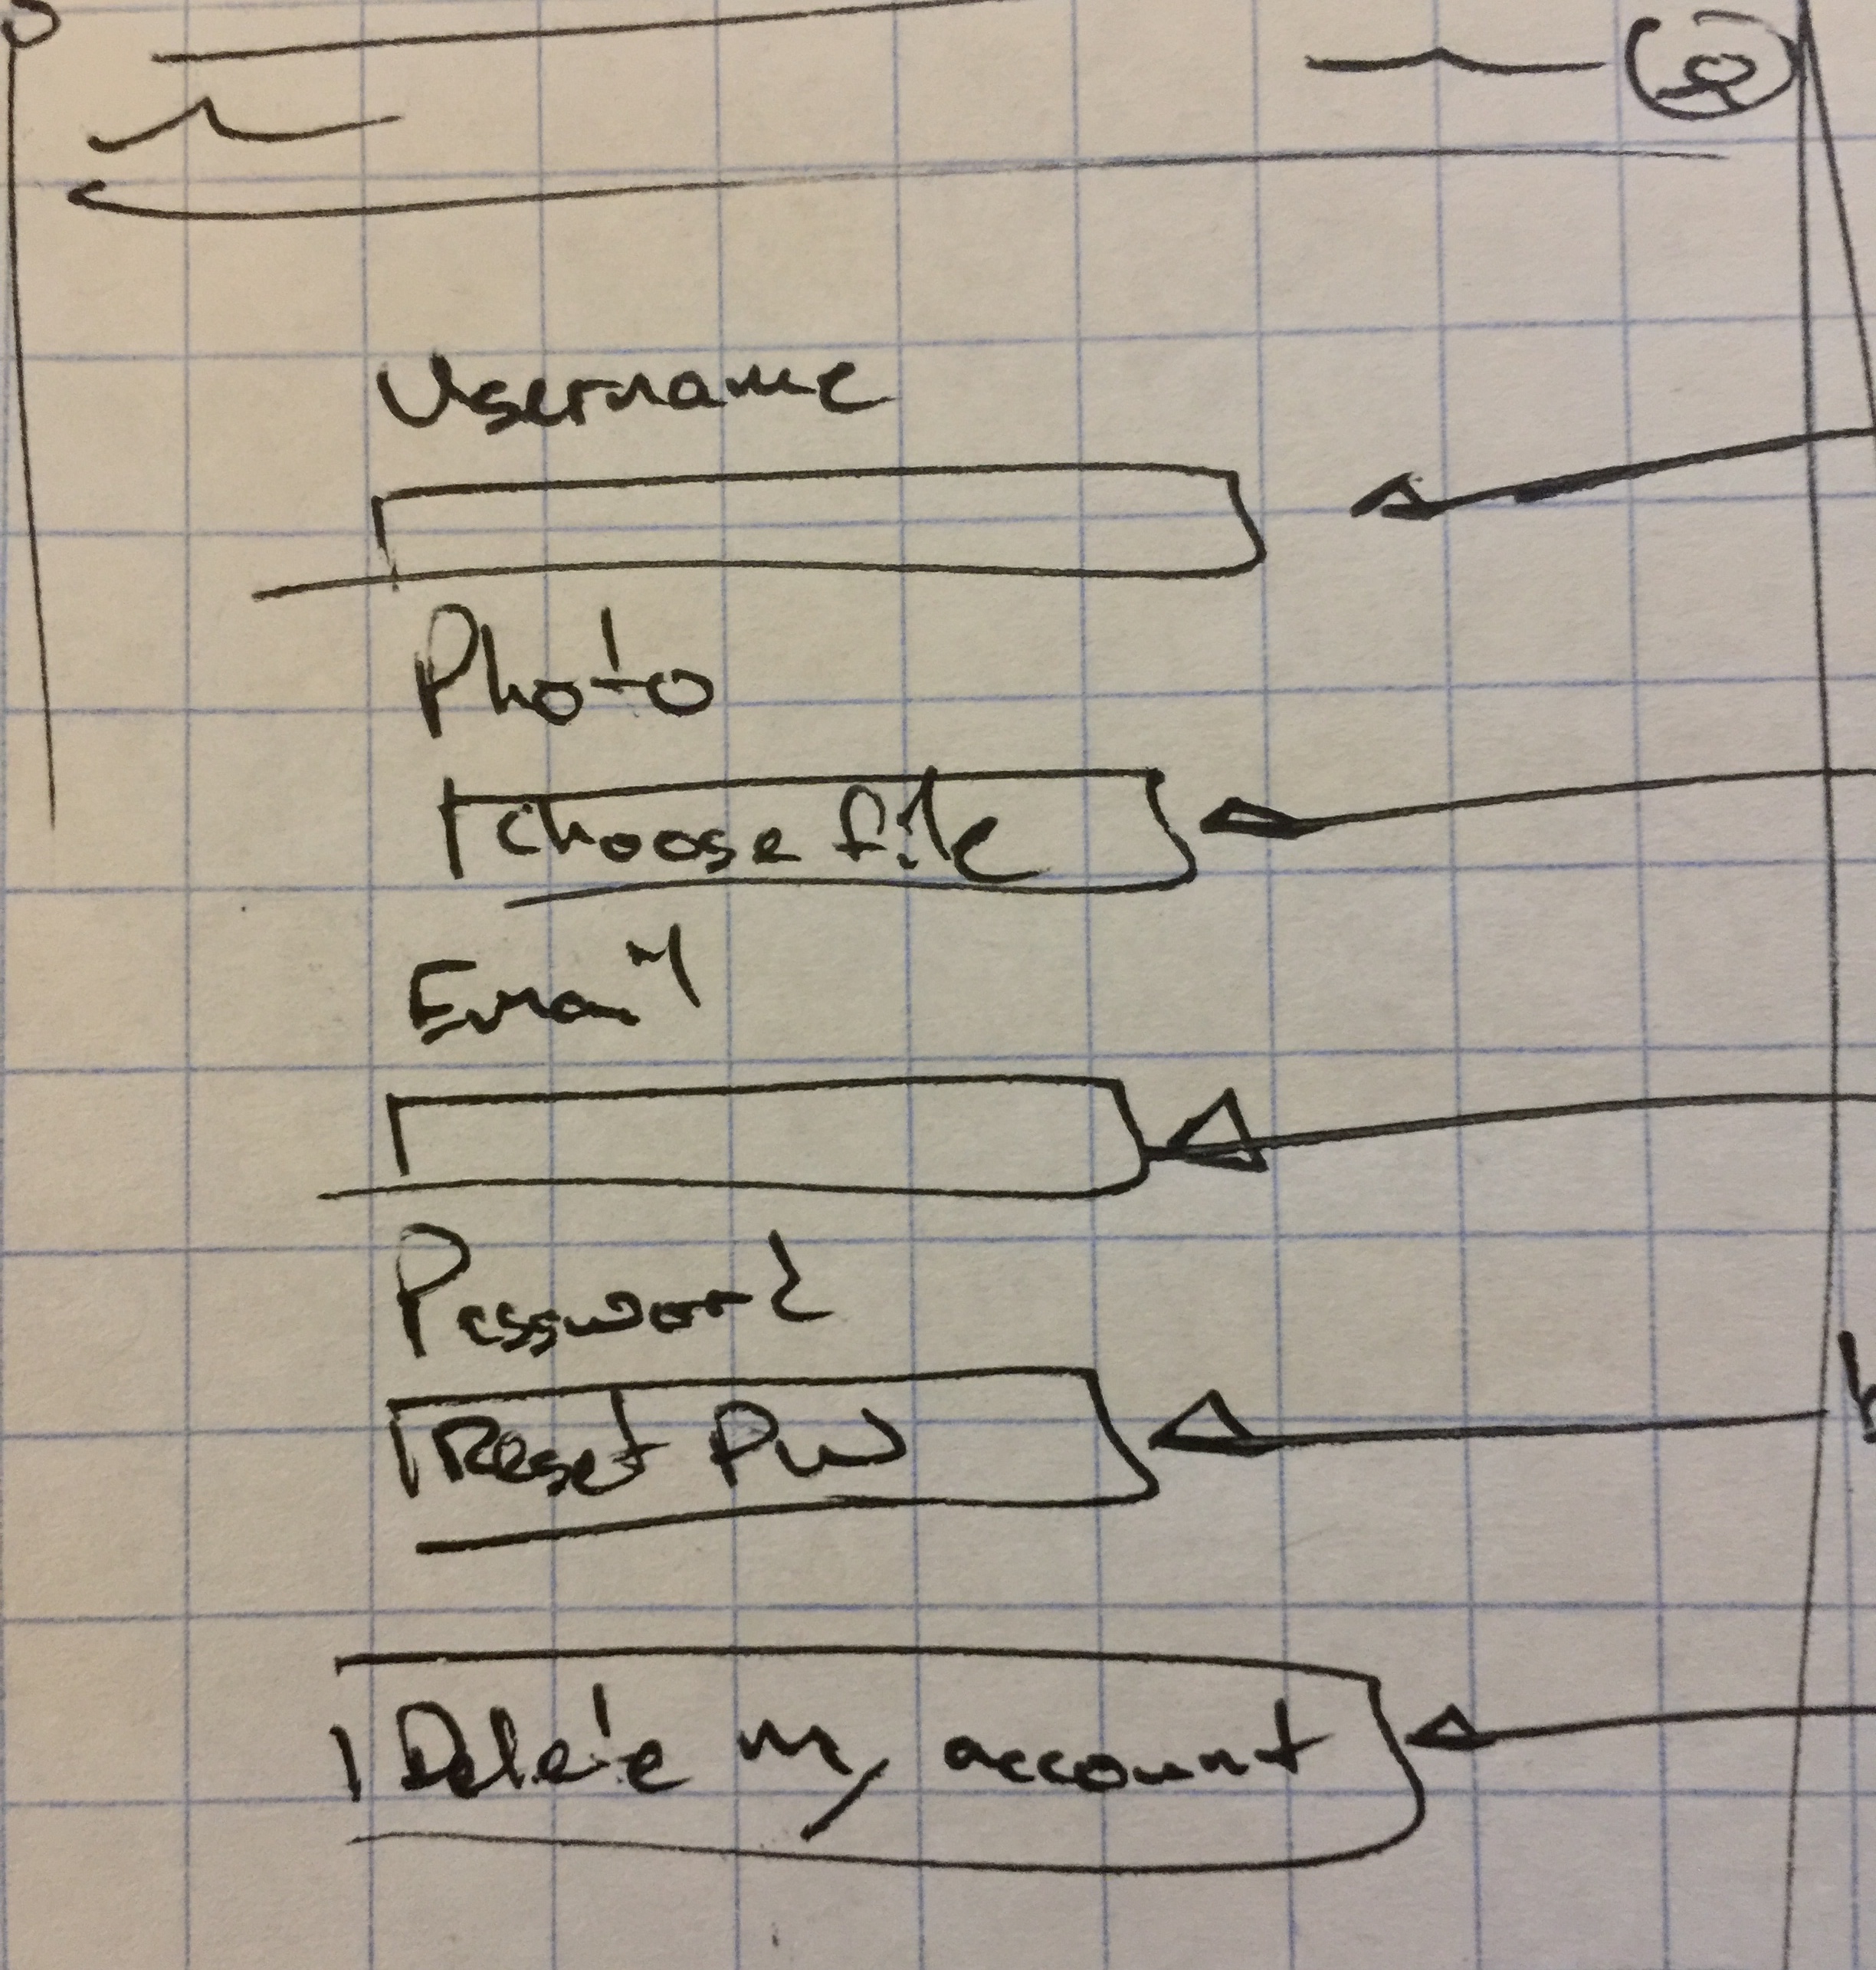 Username
Photo
Choose file
Email
Password
Reset PW
Delete my account